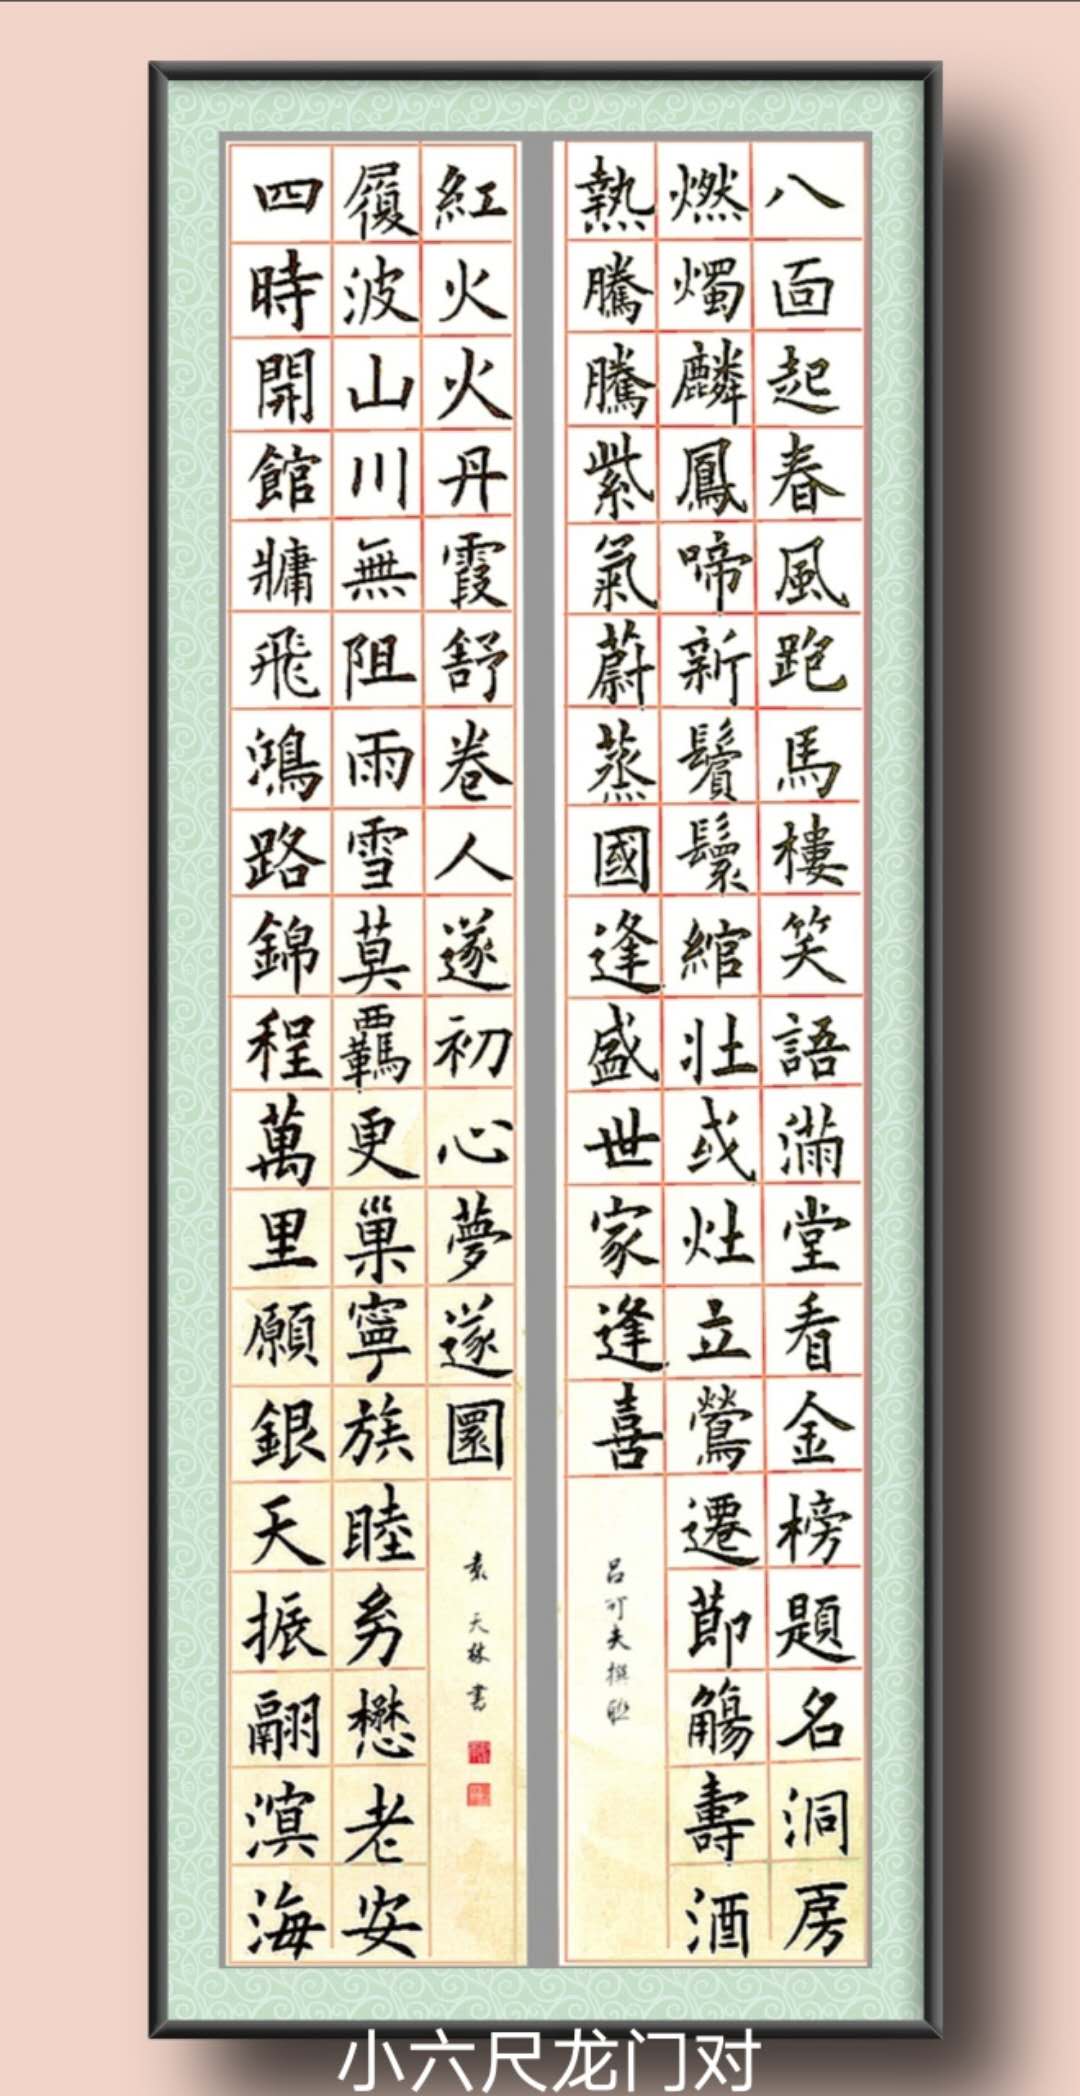 八面起春風跑馬樓笑語滿堂看金榜題名洞房
燃燭麟鳳啼新鬢鬟綰壯或灶立鶯遷節觴壽酒
熱騰騰紫氣蔚蒸國逢盛世家逢喜
呂可夫撰聯
四時開館牅飛鴻路錦程萬里願銀天振翮溟海
履波山川無阻雨雪莫覊更巢寧族睦懋老安
紅火火丹霞舒卷人遂初心夢遂圜
袁天林書
小六尺龙门对